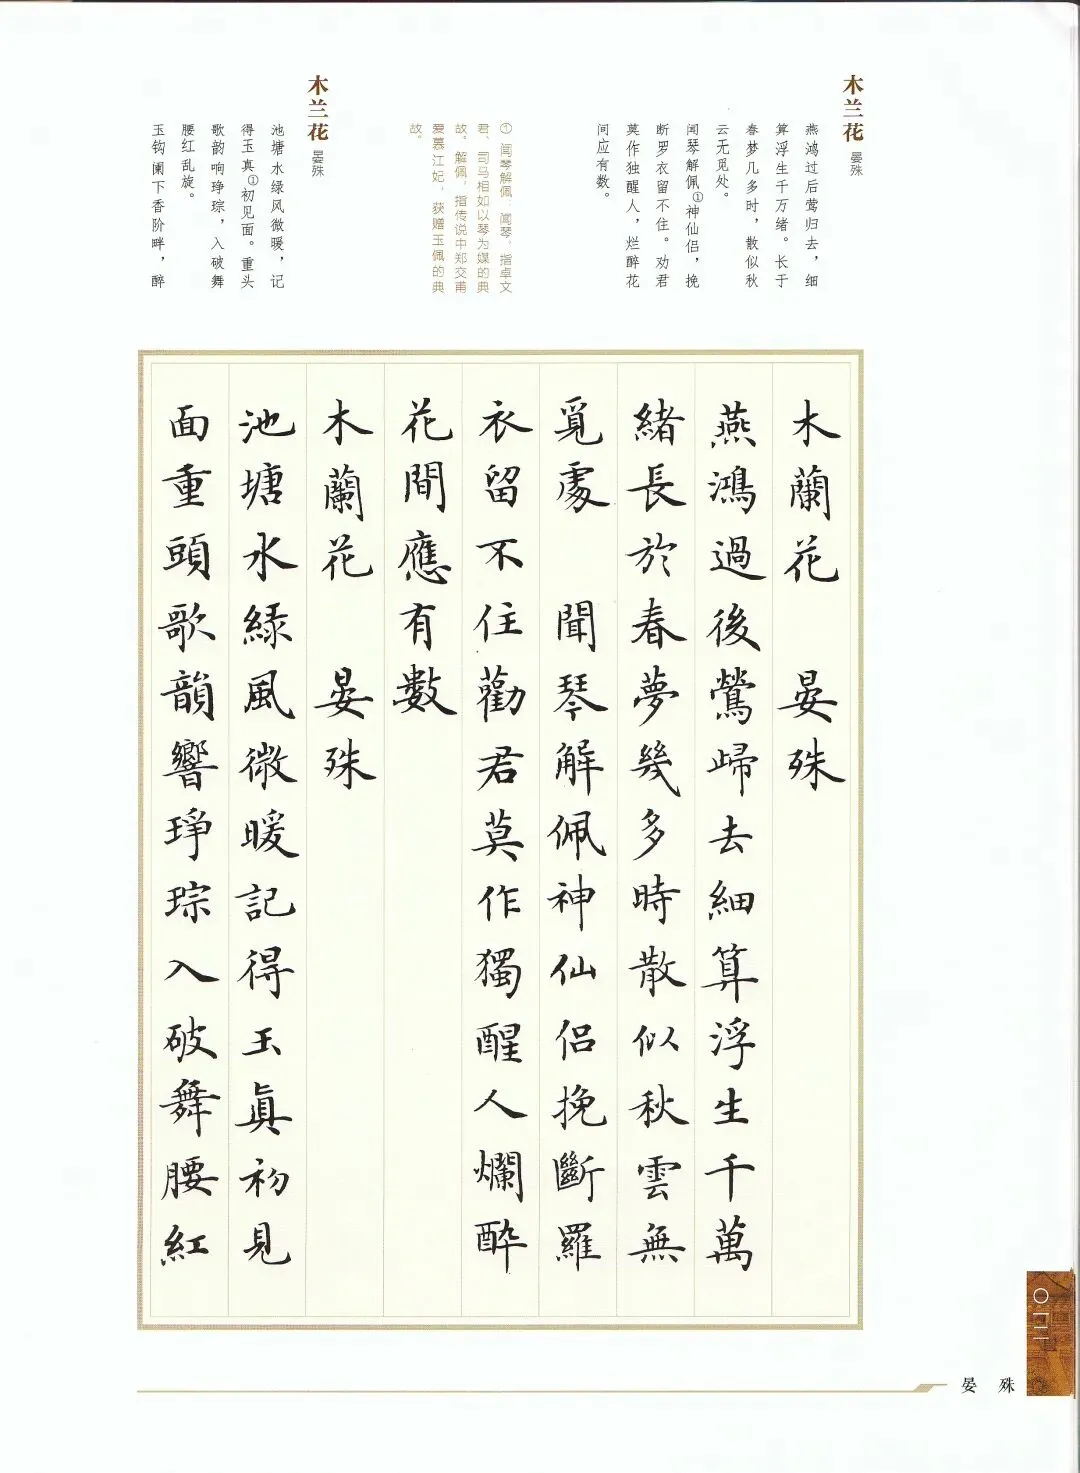 木兰花 晏殊
燕鸿过后莺归去，细
算浮生千万绪。长于
春梦几多时，散似秋
云无觅处。
闻琴解佩①神仙侣，挽
断罗衣留不住。劝君
莫作独醒人，烂醉花
间应有数。
① 闻琴解佩：闻琴，指卓文
君、司马相如以琴为媒的典
故。解佩，指传说中郑交甫
爱慕江妃，获赠玉佩的典
故。
木兰花 晏殊
池塘水绿风微暖，记
得玉真①初见面。重头
歌韵响琤琮，入破舞
腰红乱旋。
玉钩阑下香阶畔，醉
木蘭花 晏殊
燕鴻過後鶯歸去細算浮生千萬
緒長於春夢幾多時散似秋雲無
覓處 聞琴解佩神仙侣挽斷羅
衣留不住勸君莫作獨醒人爛醉
花間應有數
木蘭花 晏殊
池塘水緑風微暖記得玉真初見
面重頭歌韻響琤琮入破舞腰紅
晏 殊